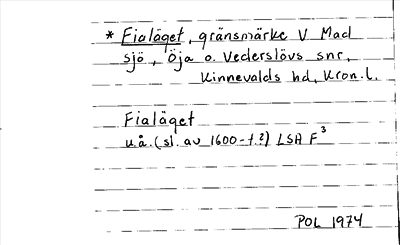 * Fialäget, gränsmärke V Mad
sjö, Öja o. Vederslövs snr,
Kinnevalds hd, Kron. l.
Fialäget
u.å. (sl. av 1600-t.?) LSA F³
POL 1974